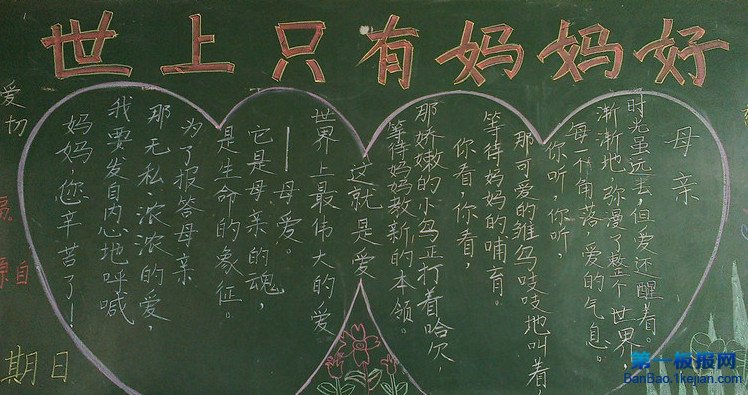 世上只有妈妈好
母亲
时光虽远去,但爱还醒着。
渐渐地弥漫了整个世界,
每一个角落 爱的气息。
你听,你听,
那可爱的雏鸟吱吱地叫着,
等待妈妈的哺育。
你看,你看,
那娇嫩的小鸟正打着哈欠,
等待妈妈教新的本领。
这就是爱
世界上最伟大的爱
——母爱。
它是母亲的魂,
是生命的象征。
为了报答母亲
那无私浓浓的爱,
我要发自内心地呼喊
妈妈,您辛苦了!
爱切
源自
期日
第一板报网
BanBao.1kejian.com